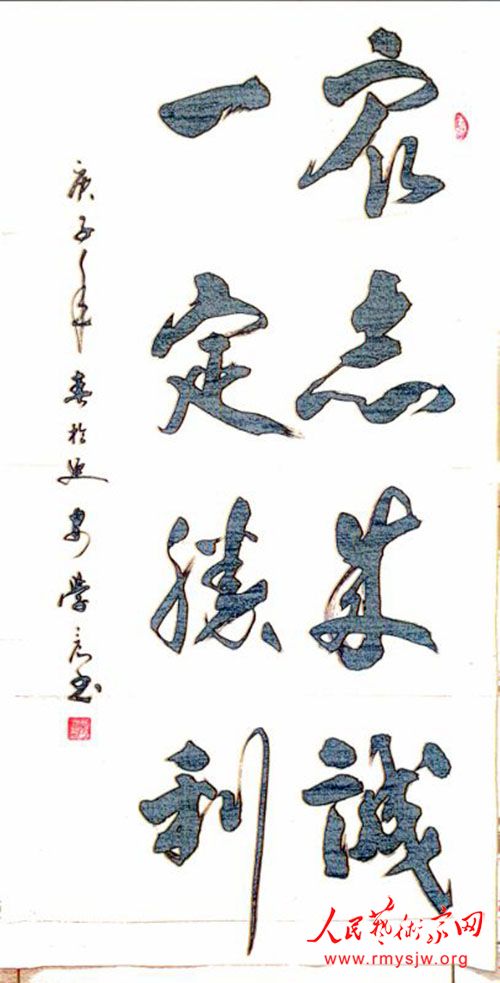 众志成诚
一定胜利
庚子年春於延安学言书
人民艺术家网
www.rmysjw.org